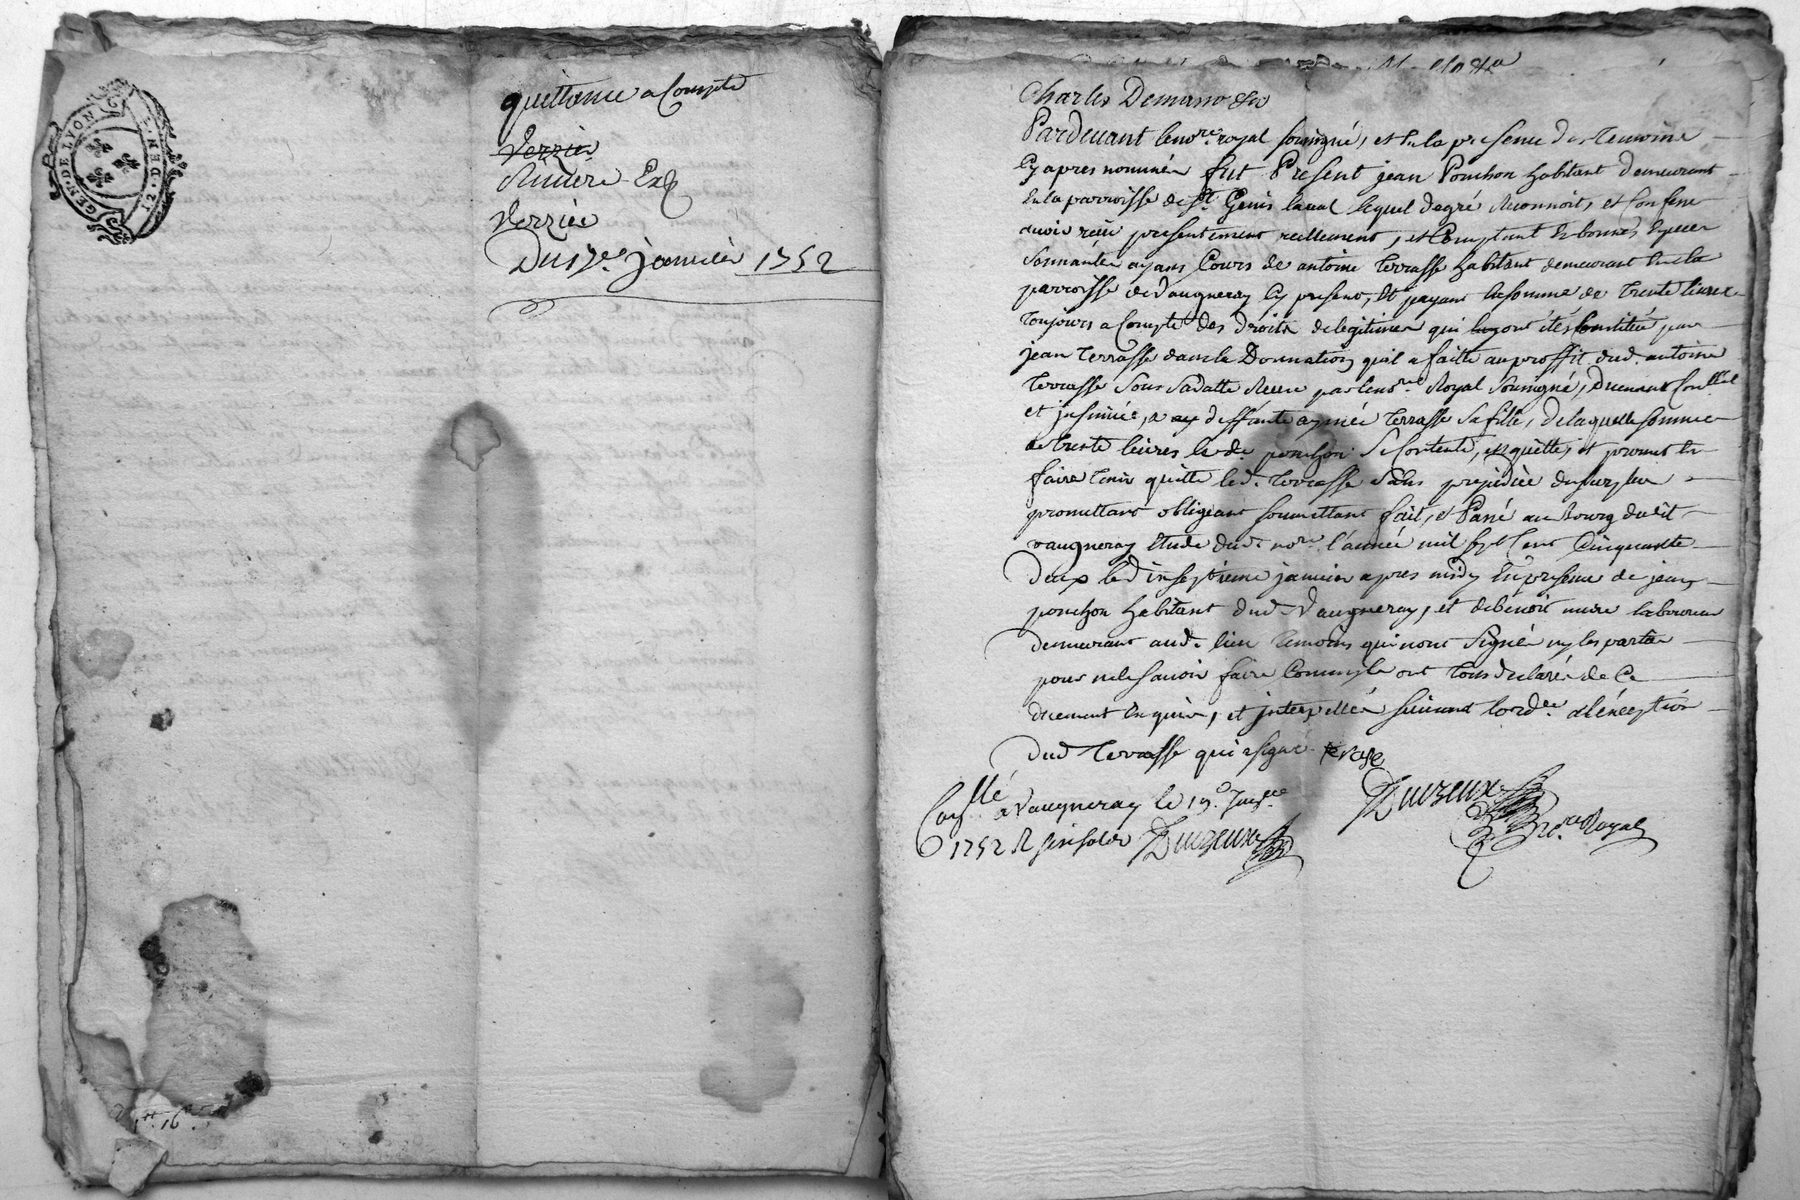 GEN. DE LYON
quittance a Compte
Verzieu
Riviere
Verzieu
Du 17e. janvier 1752
Charles Demasso &ca
Pardevant le no.re royal soussigné, et En la presence des temoins
Cy apres nommés fut Present jean Ponchon habitant demeurant
En la parroisse de St. Genis laval lequel de gré Reconnoit, et Confesse
avoir reçu presentement reellement, et Comptant En bonnes Especes
Sonnantes ayans Cours de antoine terrasse habitant demeurant En la
parroisse de Vaugneray Cy present, Et payant la somme de trente livres
toujours a Compte des droits de legitimes qui luy ont étés Constitués par
jean terrasse dans la Donnation qu'il a faitte au proffit dud. antoine
terrasse Sous Sa datte Receue par le no.re Royal Soussigné, Duement Con.llé
et insinuée, a deffunte aymée terrasse sa fille, de laquelle somme
de trente livres led. ponchon Se Contente, en quitte, et promet En
faire tenir quitte led. terrasse Sans prejudice du surplus
promettant obligeant soumettant fait, et Passé au Bourg dudit
vaugneray Etude dud. no.re l'année mil sept Cent Cinquante
Deux le dixseptieme janvier apres midy En presence de jean
ponchon habitant dud. Vaugneray, et de benoit mure laboureur
demeurant aud. lieu temoins qui n'ont signé ny les parties
pour ne le savoir faire Comm'ils ont tous declarés de Ce
duement Enquis, et interpellés suivant l'ord.ce a l'éxception
dud. terrasse qui a signé terase
Con.llé a Vaugneray le 19e. Janv.
1752 R six sols